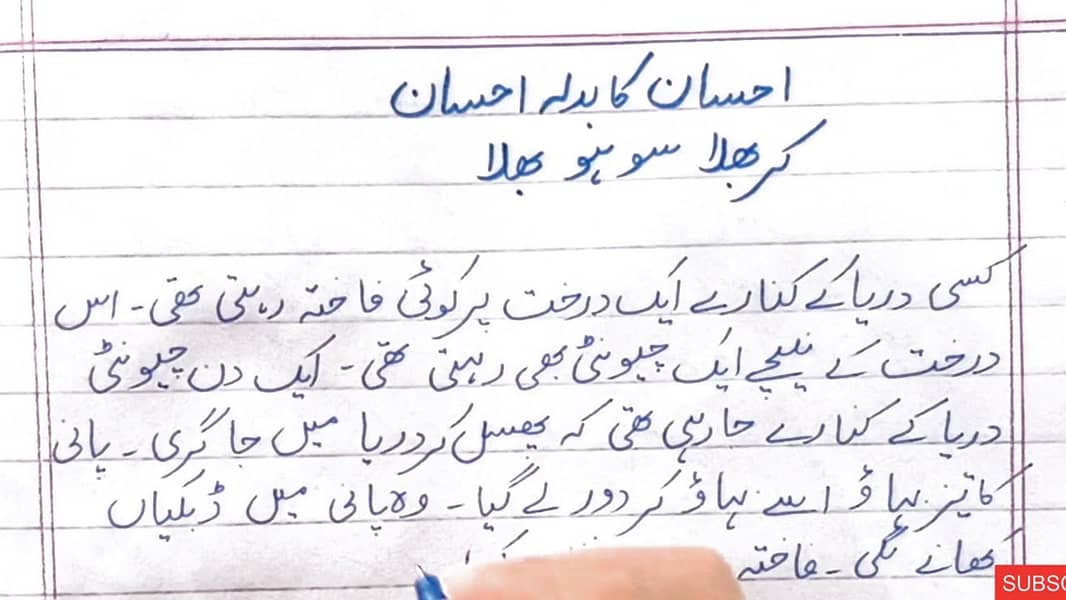 احسان کا بدلہ احسان
کر بھلا سو ہو بھلا
کسی دریا کے کنارے ایک درخت پر کوئی فاختہ رہتی تھی۔ اس
درخت کے نیچے ایک چیونٹی بھی رہتی تھی۔ ایک دن چیونٹی
دریا کے کنارے جارہی تھی کہ پھسل کر دریا میں جا گری۔ پانی
کا تیز بہاؤ اسے بہاؤ کر دور لے گیا۔ وہ پانی میں ڈبکیاں
کھانے لگی۔ فاختہ
SUBSC